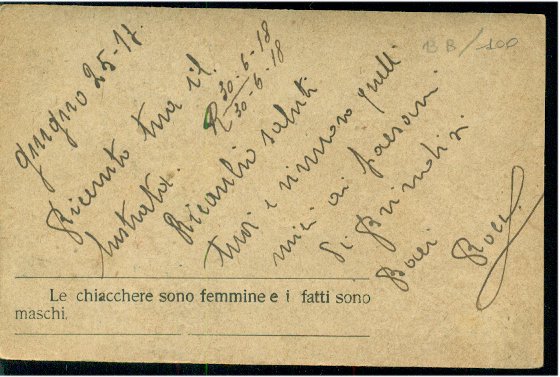 giugno 25-17.
Ricevuto tua il
lustrata
R 30-6-18
30-6-18
Ricambio saluti
tuoi e rinnovo quelli
miei ai paesani
di
Baci
BB/100
Le chiacchere sono femmine e i fatti sono
maschi.